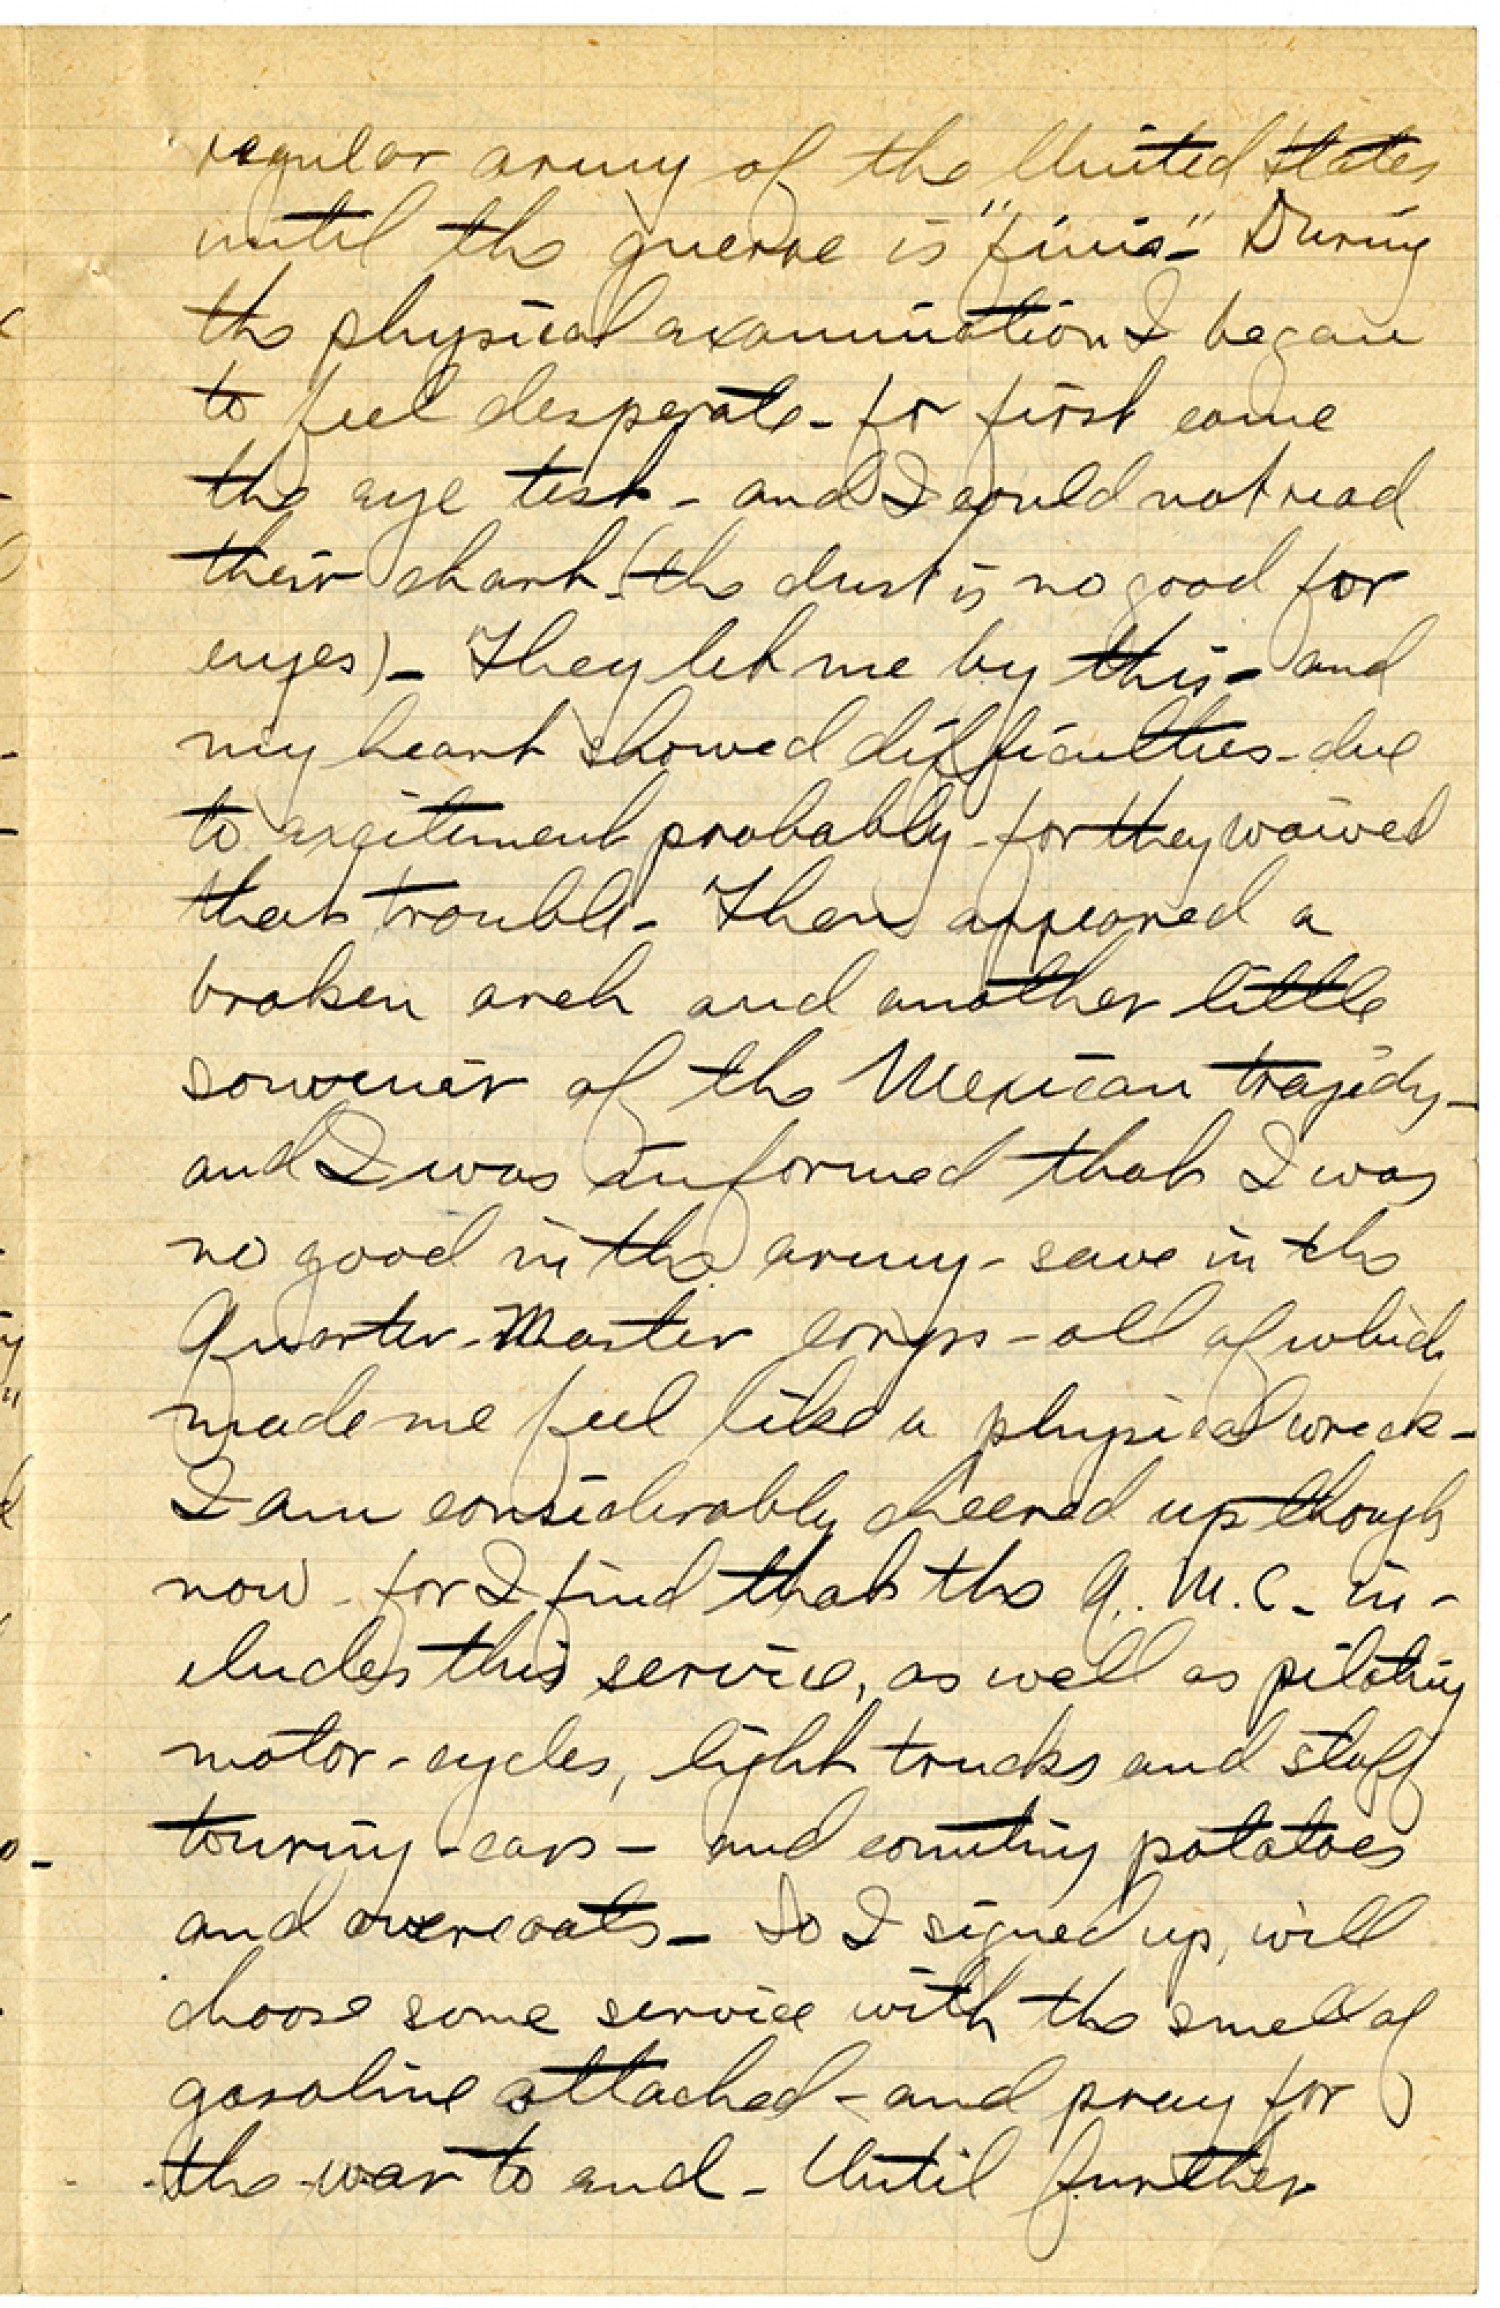 regular army of the United States
until the guerre is "finis." During
the physical examination I began
to feel desperate - for first came
the eye test - and I could not read
their chart. (the dust is no good for
eyes) - They let me by this - and
my heart showed difficulties - due
to excitement probably - for they waived
that trouble - Then appeared a
broken arch and another little
souvenir of the Mexican tragidy -
and I was informed that I was
no good in the army - save in the
Quarter-Master corps - all of which
made me feel like a physical wreck -
I am considerably cheered up though
now - for I find that the Q. M. C. in-
cludes this service, as well as piloting
motor-cycles, light trucks and staff
touring-cars - and counting potatoes
and overcoats - So I signed up, will
choose some service with the smell of
gasoline attached - and pray for
the war to end - Until further